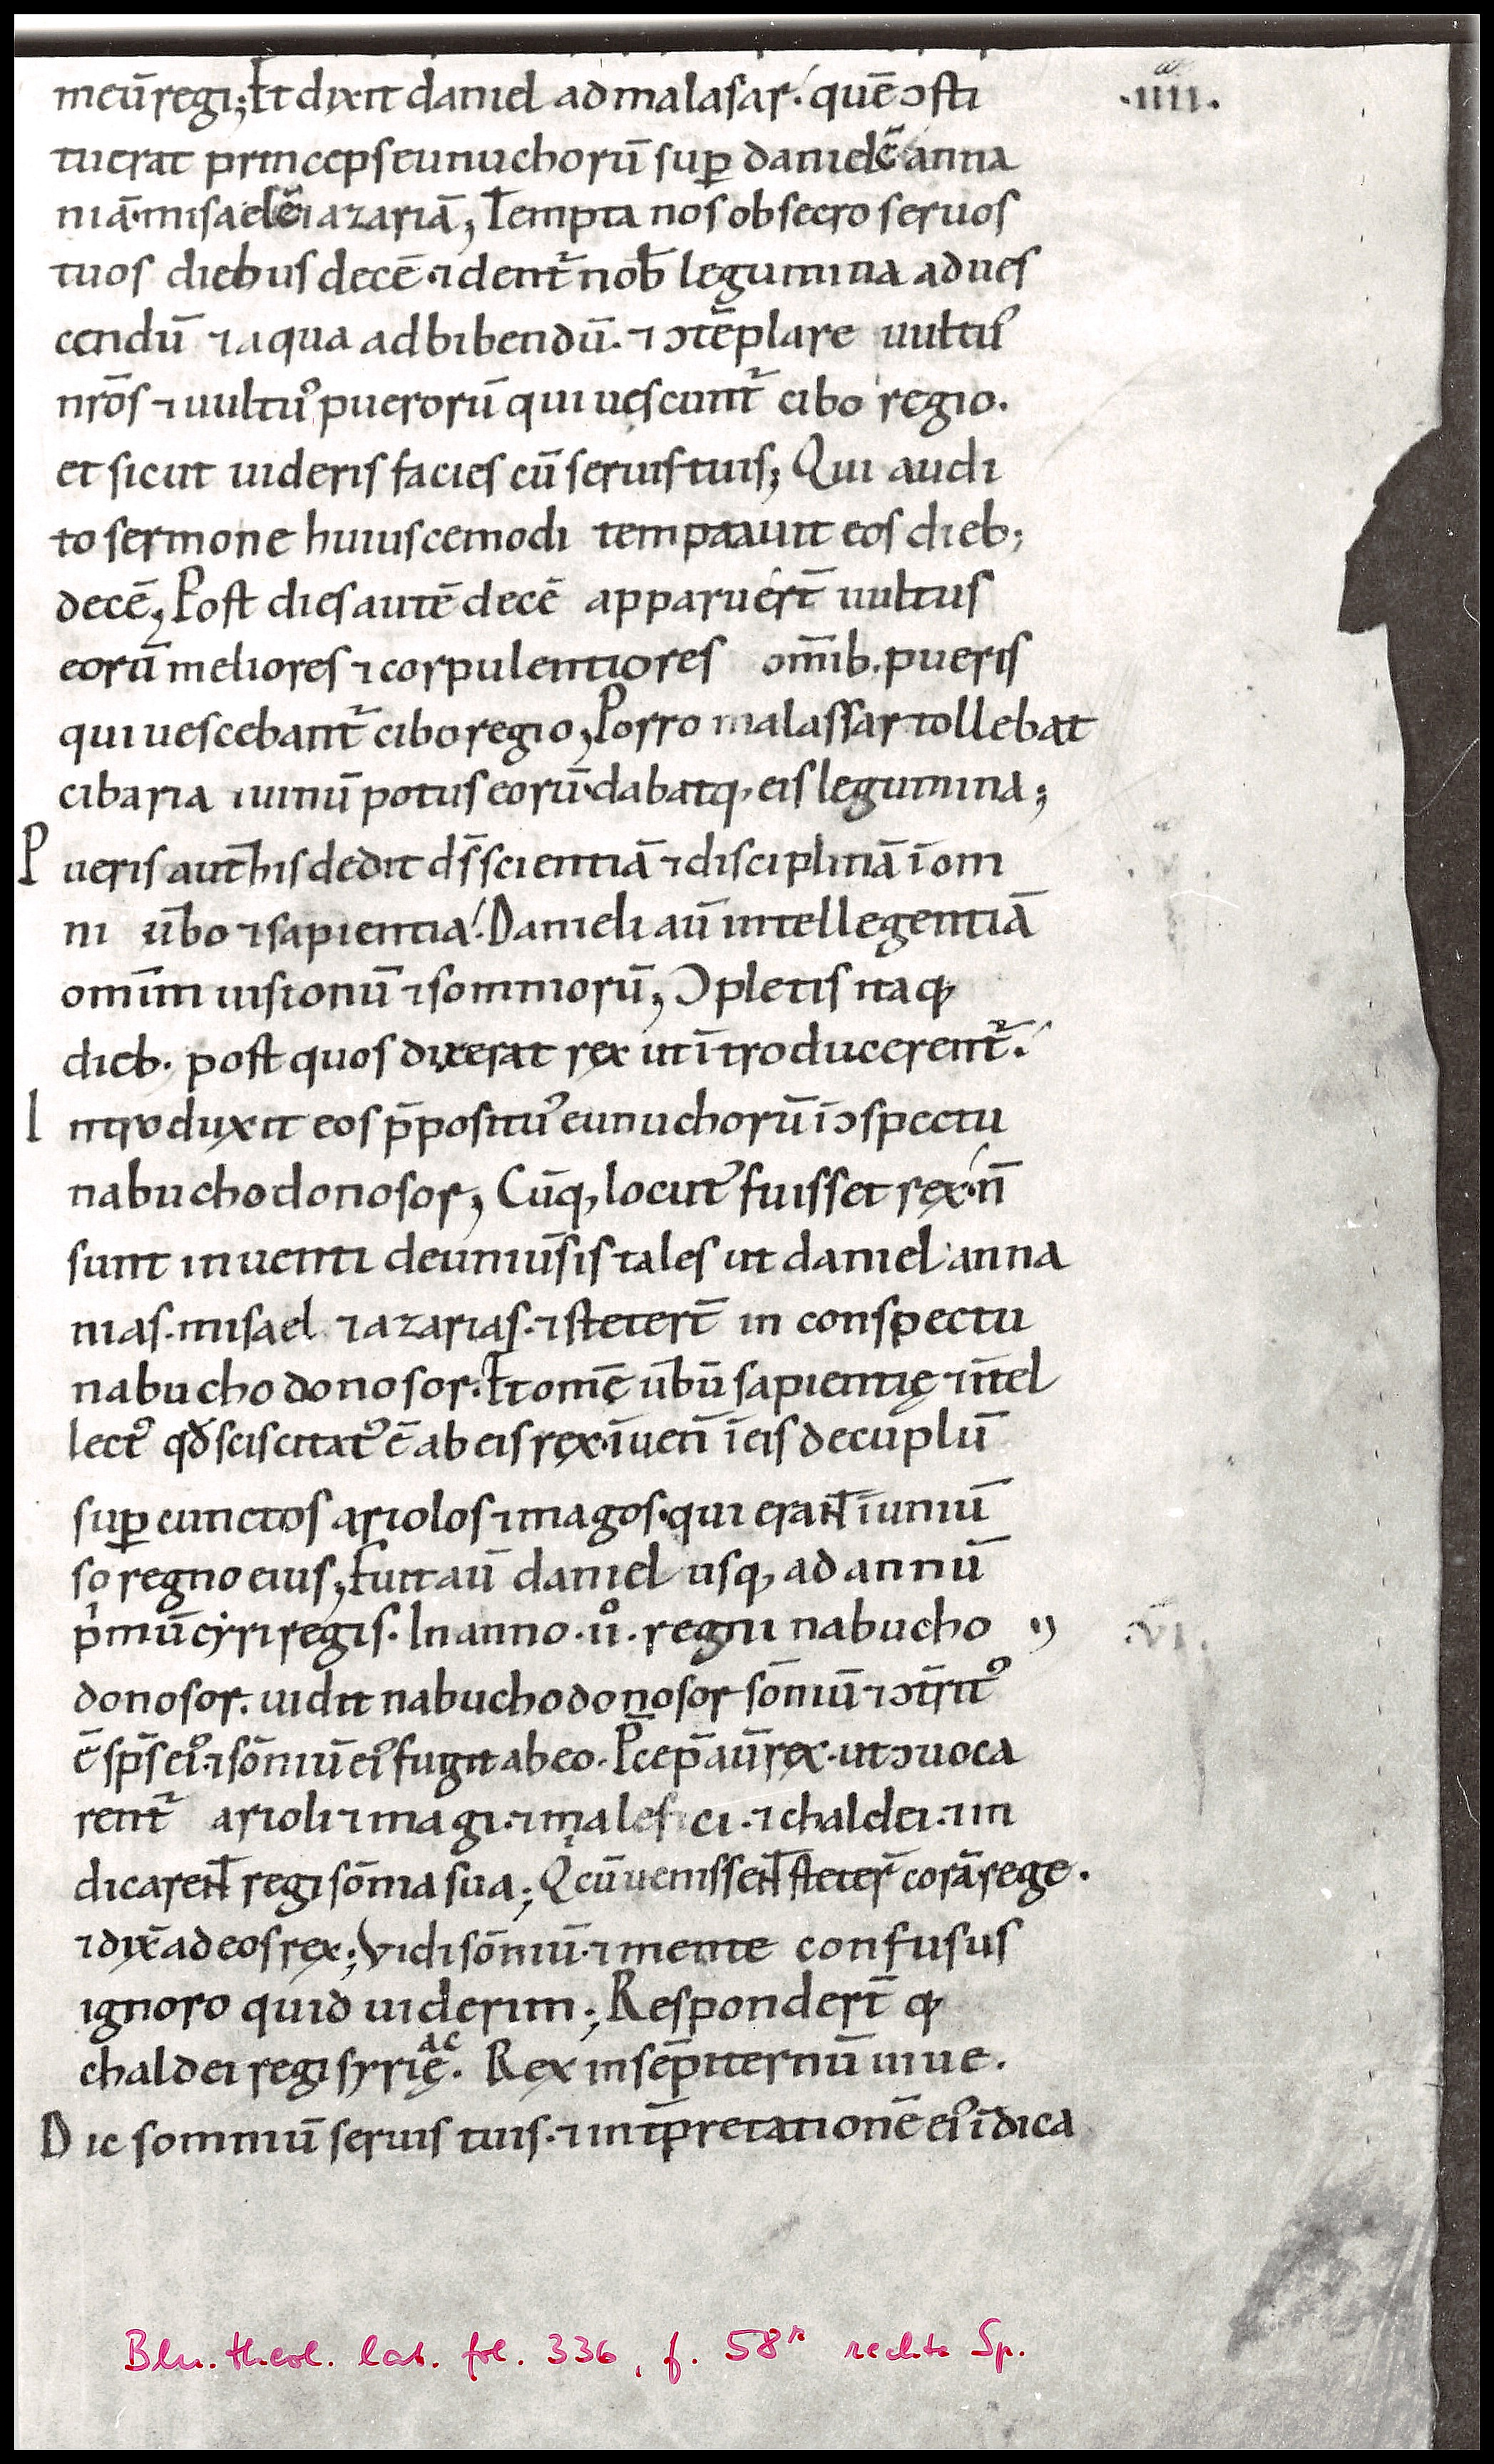 meū regi; Et dixit daniel ad malasar. quē ↄsti ·IIII·
tuerat princeps eunuchorū sup̄ danielē anna
niā·misaelē ⁊ azariā, Tempta nos obsecro seruos
tuos diebus decē·⁊ dent᷑ nob̄ legumina ad ues
cendū ⁊ aqua ad bibendū.⁊ ↄtēplare uultuꝰ
nr̄os ⁊ uultuꝰ puerorū qui uescunt᷑ cibo regio.
et sicut uideris facies cū seruis tuis; Qui audi
to sermone huiuscemodi temptauit eos dieb;
decē, Post dies autē decē apparuert̄ uultus
eorū meliores ⁊ corpulentiores om̄ib. pueris
qui uescebant᷑ cibo regio, Porro malassar tollebat
cibaria ⁊ uinū potus eorū·dabatq, eis legumina;
Pueris aut̄ his dedit ds̄ scientiā ⁊ disciplinā ī om
ni ūbo ⁊ sapientia. Danieli aū intellegentiā
om̄im uisionū ⁊ somniorū, Ↄpletis itaq,
dieb. post quos dixerat rex ut ītroducerent᷑.
Introduxit eos p̄posituꝰ eunuchorū ī ↄspectu
nabuchodonosor, Cūq, locutꝰ fuisset rex·n̄
sunt inuenti de uniūsis tales ut daniel·anna
nias·misael ⁊ azarias·⁊ stetert̄ in conspectu
nabuchodonosor. Et om̄ę ūbū sapientię ⁊ īntel
lectꝰ qđ sciscitatꝰ ē ab eis rex·īuen̄ ī eis decuplū
sup̄ cunctos ariolos ⁊ magos·qui erant̄ ī uniū
so regno eius, Fuit aū daniel usq, ad annū
pⁱmū cyri regis. In anno·IIº·regni nabucho ·VI·
donosor. uidit nabuchodonosor som̄iū ⁊ ↄtr̄itꝰ
ē sp̄s eiꝰ·⁊ som̄iū eiꝰ fugit ab eo. P̄cep̄ aū rex·ut ↄuoca
rent᷑ arioli ⁊ magi·⁊ malefici·⁊ chaldei·⁊ in
dicarent̄ regi som̄ia sua; Qⁱ cū uenissent̄ steter̄ corā rege.
⁊ dix̄ ad eos rex; Vidi som̄iū·⁊ mente confusus
ignoro quid uiderim; Respondert̄ q,
chaldei regi syrię ac. Rex in sēpiternū uiue.
Dic somniū seruis tuis·⁊ int̄pretationē eiꝰ īdica
Bln. theol. lat. fol. 336, f. 58r rechte Sp.